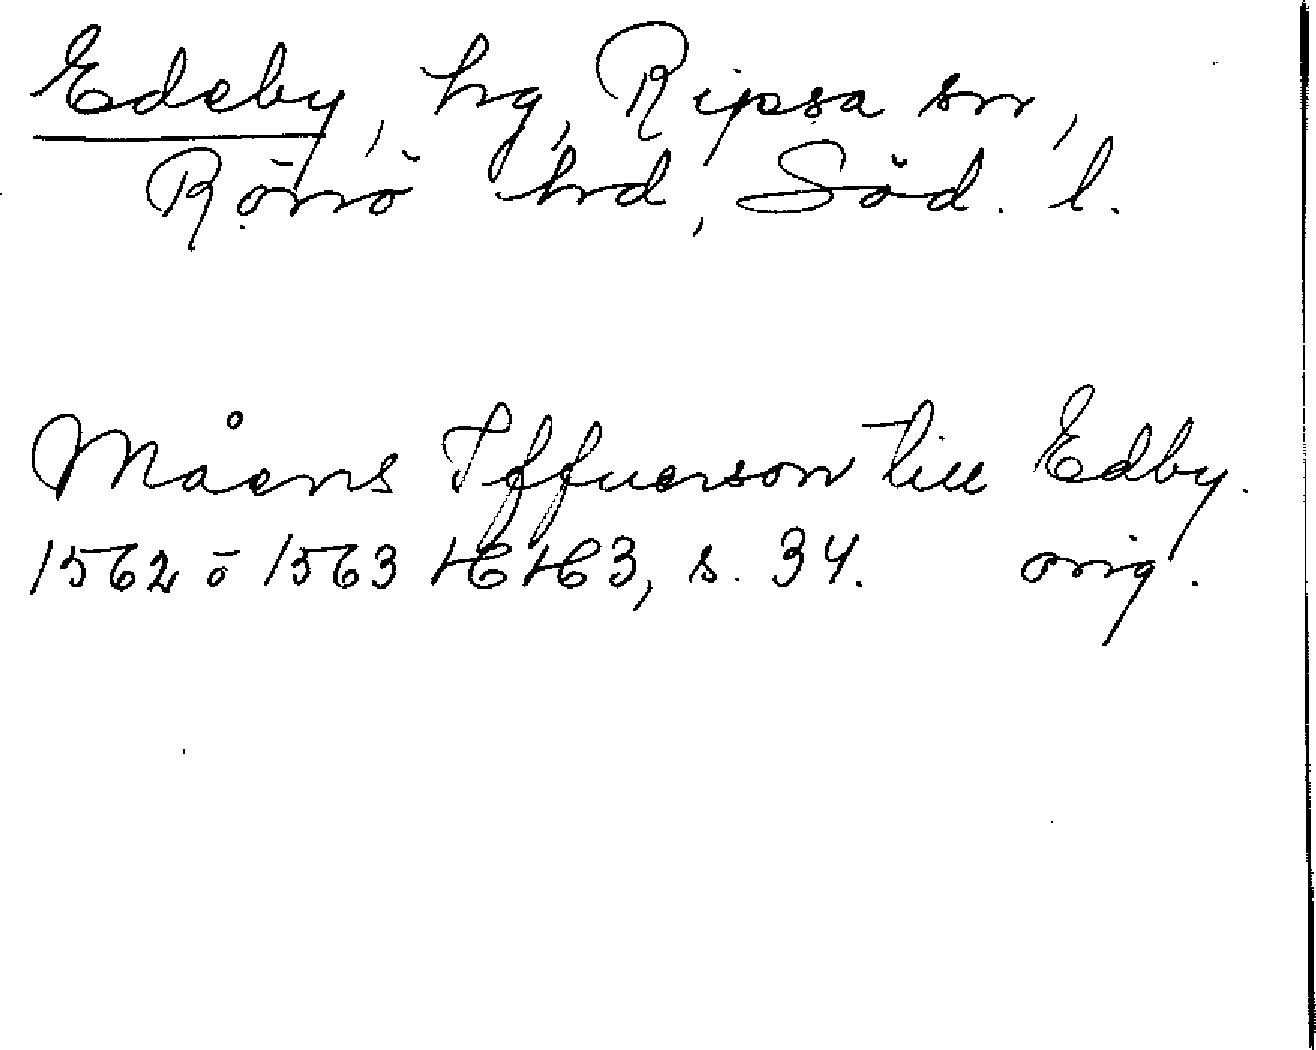 Edeby, hg, Ripsa sn,
Rönö hrd, Söd. l.
Måens Iffuerson till Edby.
1562 ō 1563 HH3, s. 34. orig.